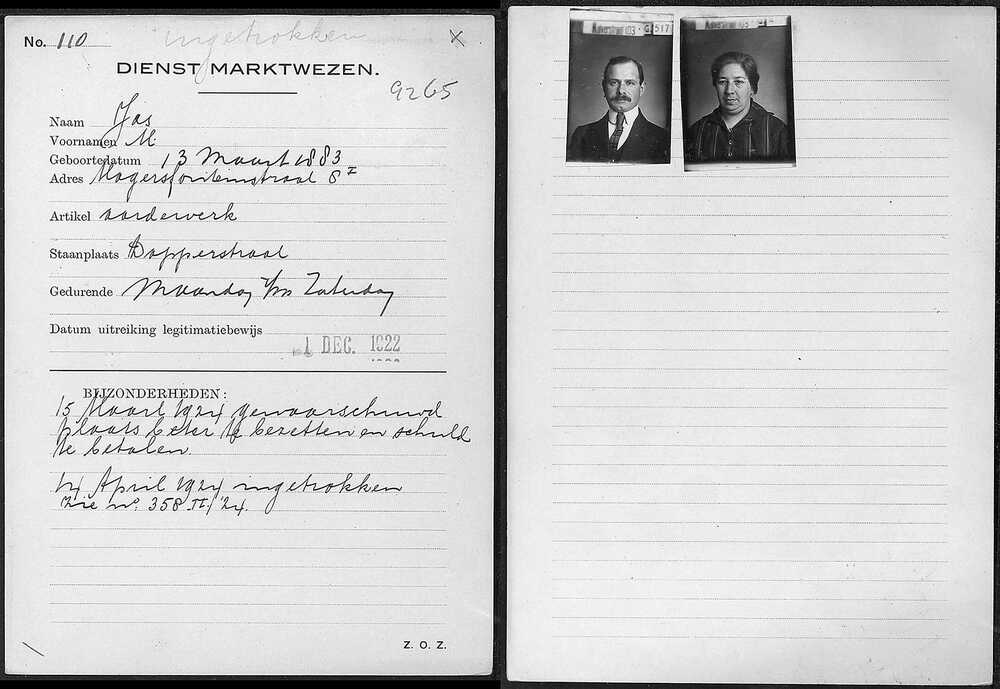 No. 110
ingetrokken
DIENST MARKTWEZEN.
9265
Naam Jas
Voornamen M
Geboortedatum 13 Maart 1883
Adres Magersfonteinstraat 8 I
Artikel aardewerk
Staanplaats Dapperstraat
Gedurende Maandag t/m Zaterdag
Datum uitreiking legitimatiebewijs
1 DEC. 1922
BIJZONDERHEDEN:
15 Maart 1924 gewaarschuwd
plaats beter te bezetten en schuld
te betalen.
14 April 1924 ingetrokken
Zie no. 358 II/'24.
Z. O. Z.